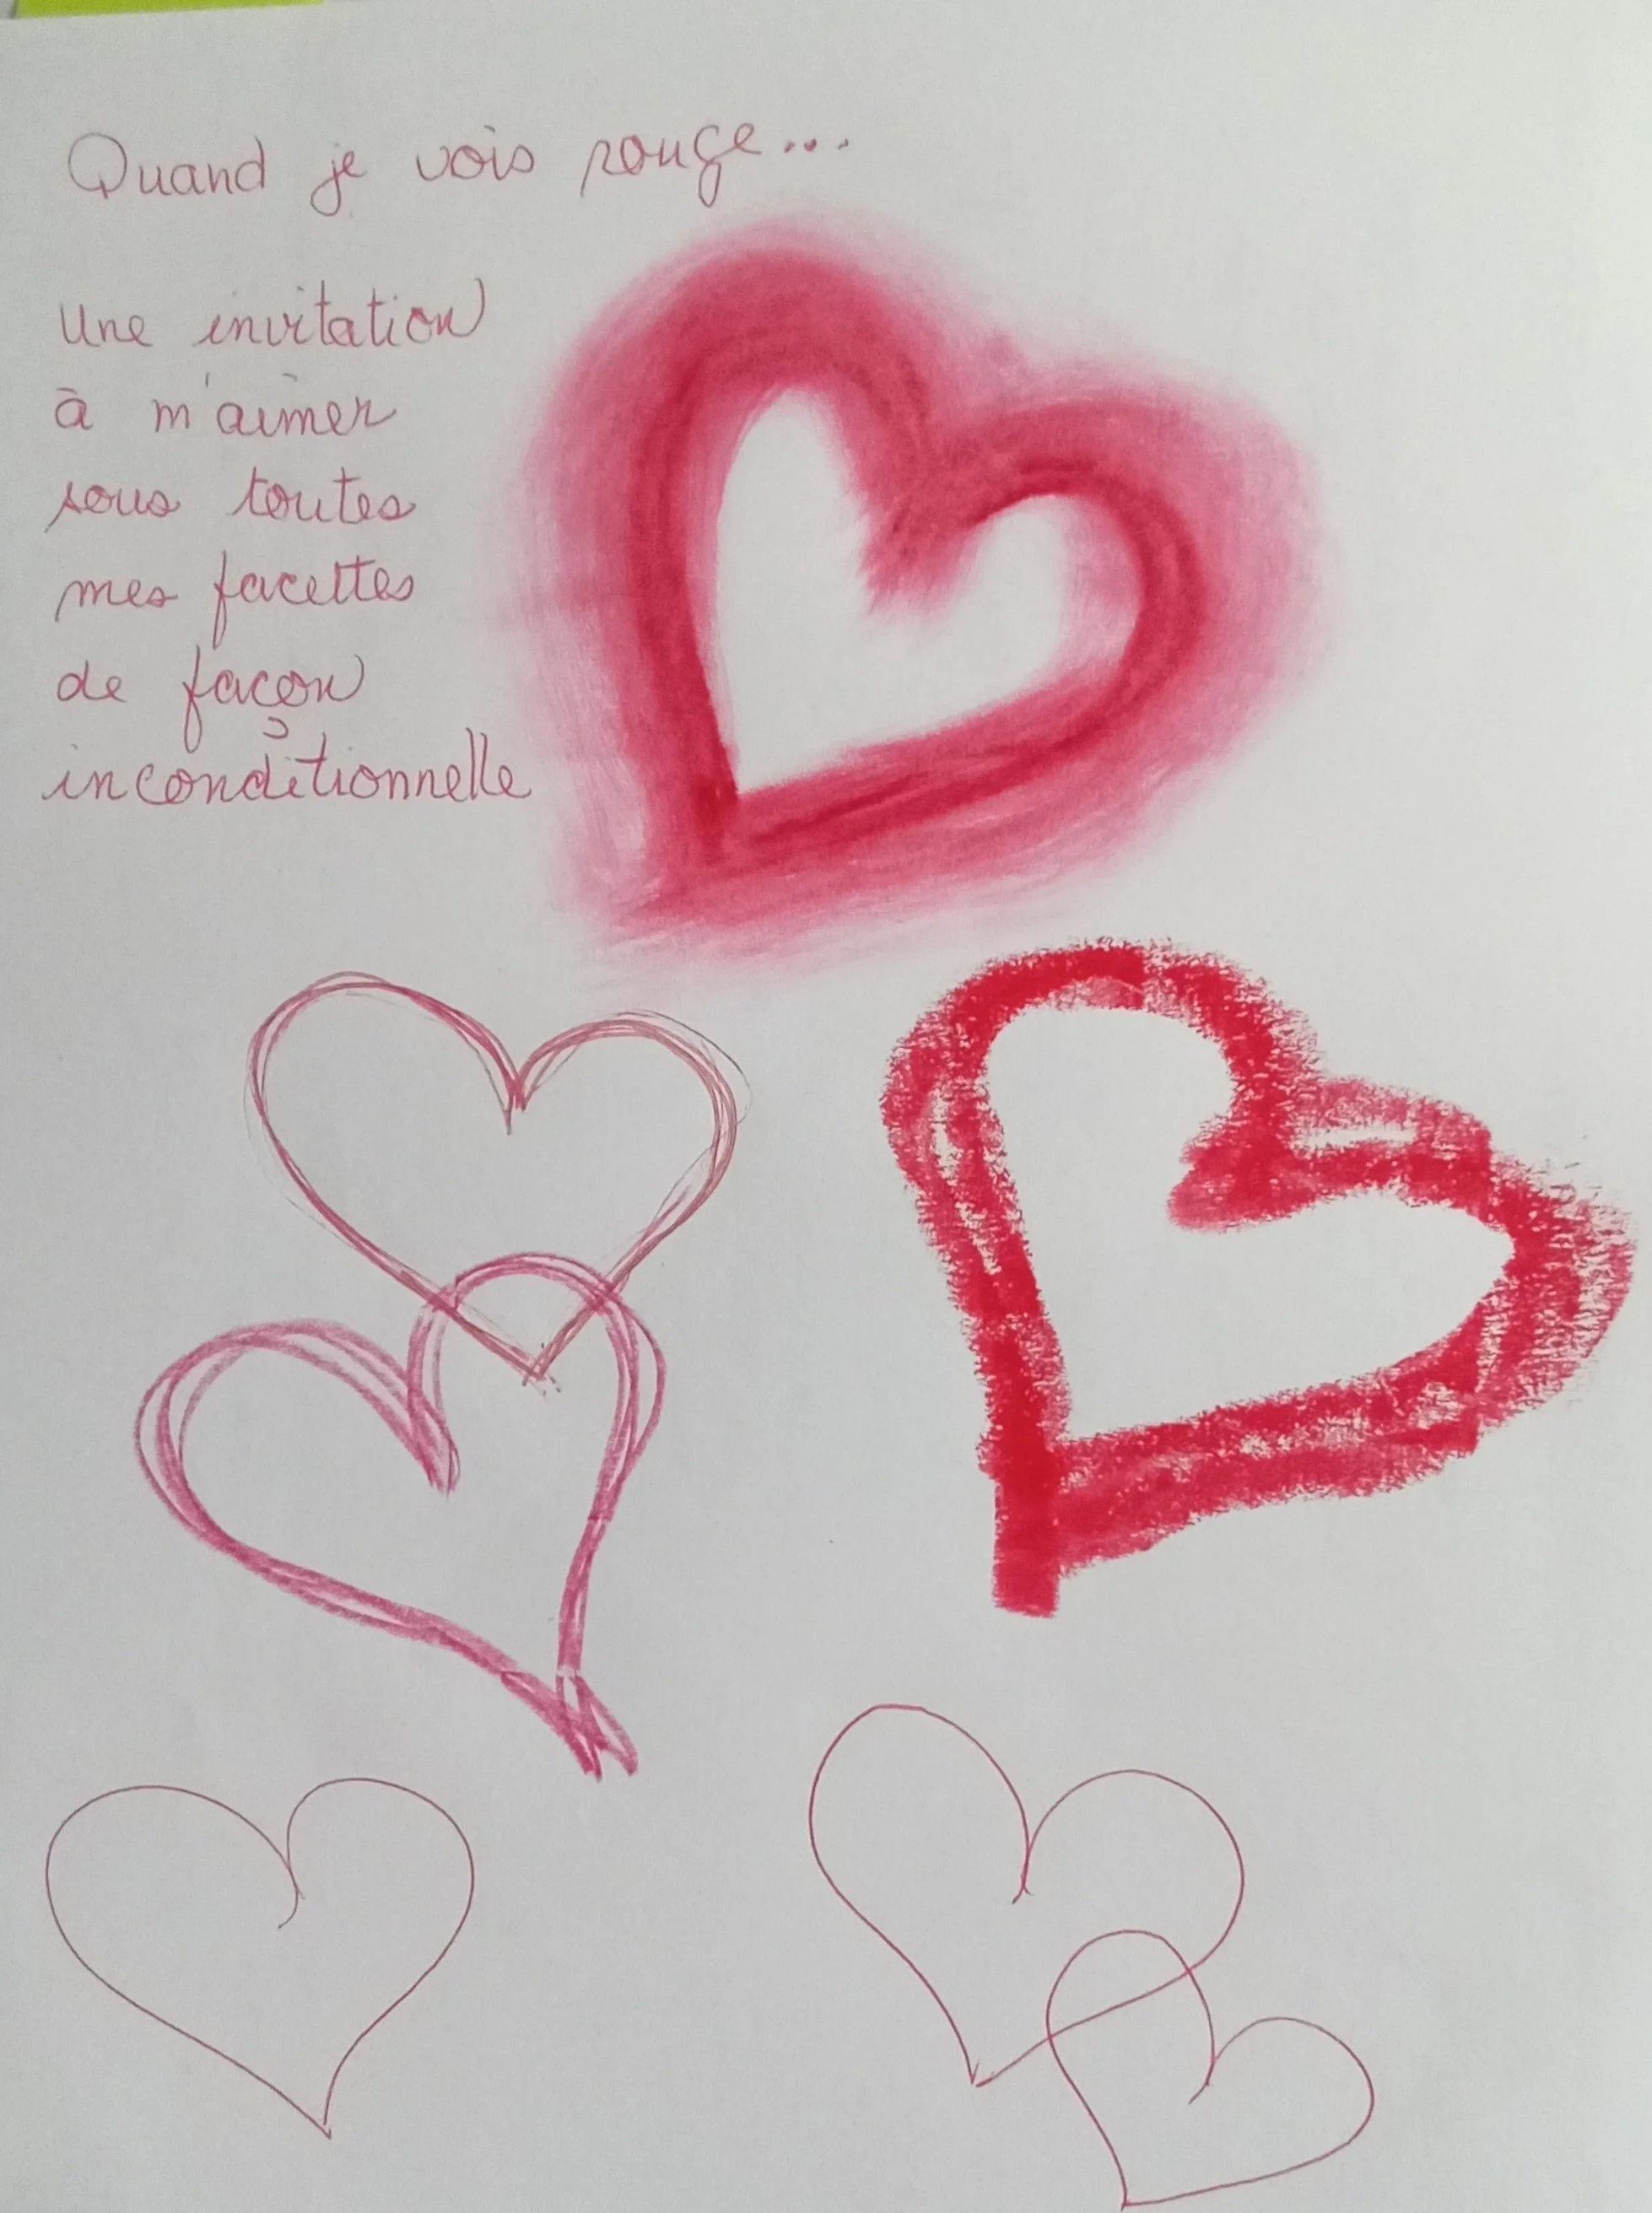 Quand je vois rouge...
Une invitation
à m'aimer
sous toutes
mes facettes
de façon
inconditionnelle